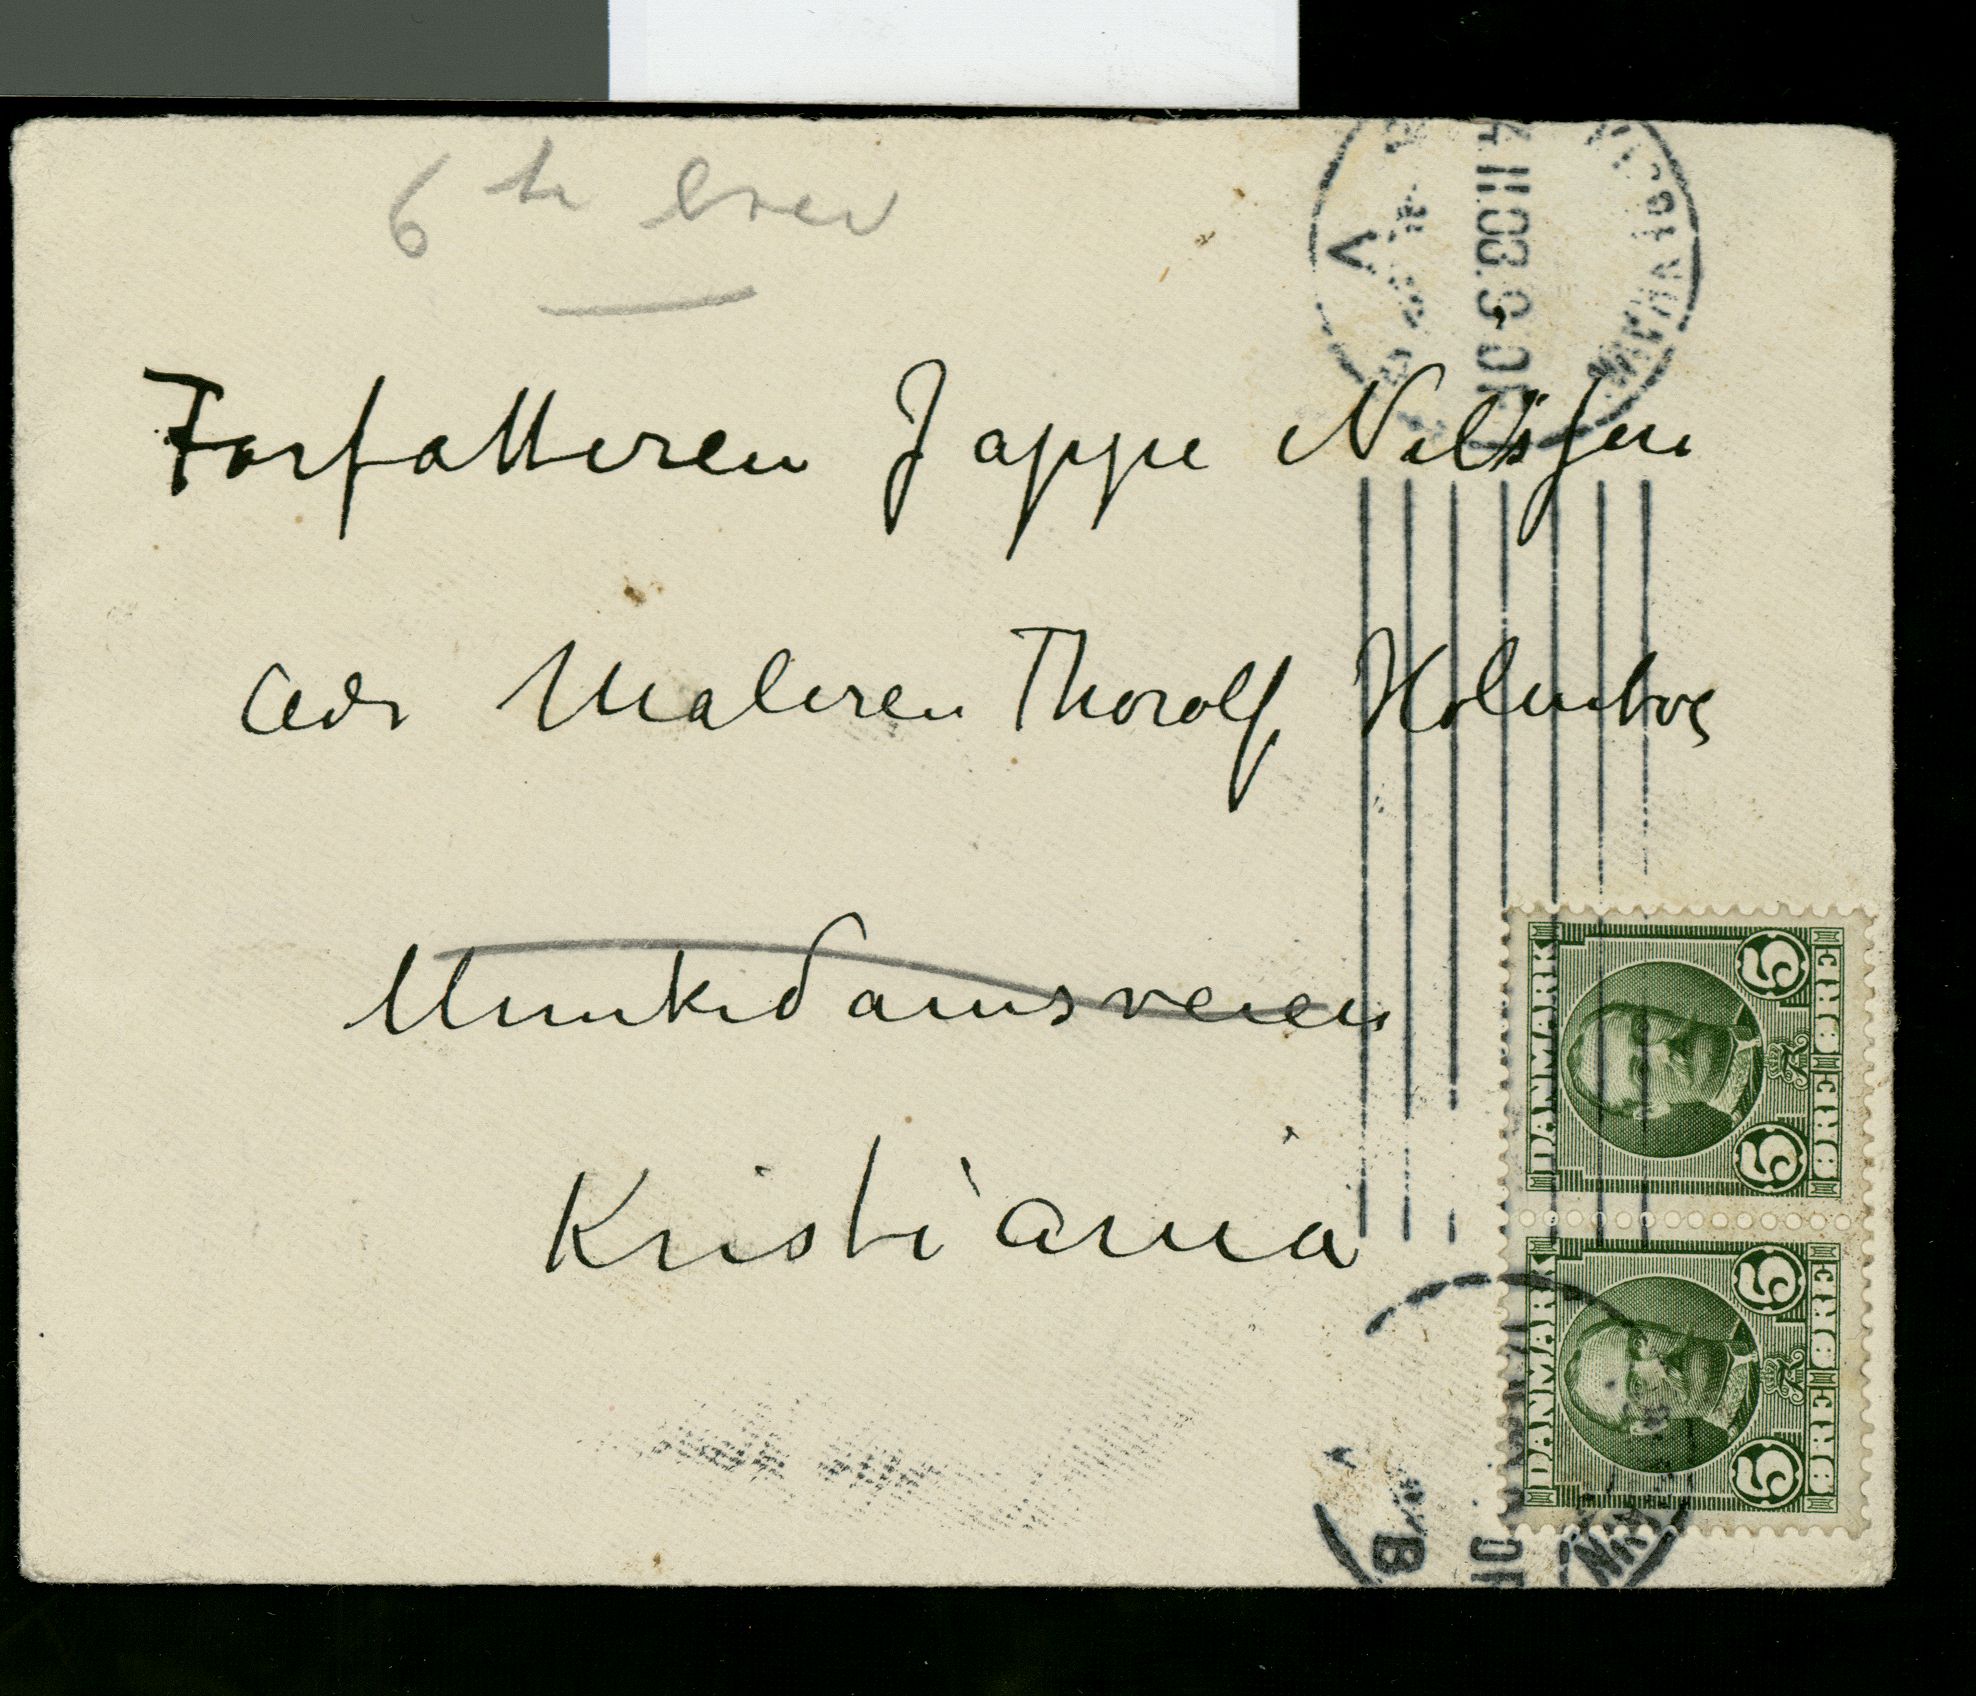 6te brev
Forfatteren Jappe Nilssen
adr Maleren Thorolf Holmboe
Munkedamsveien
Kristiania
4.11.08.9-10F
V
DANMARK
5 5
ØRE ØRE
DANMARK
5 5
ØRE ØRE
B